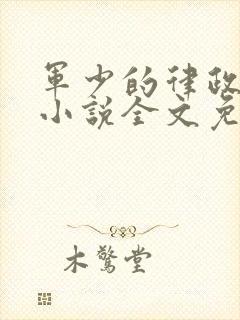 軍少的律政
小說全文免
木鷙堂